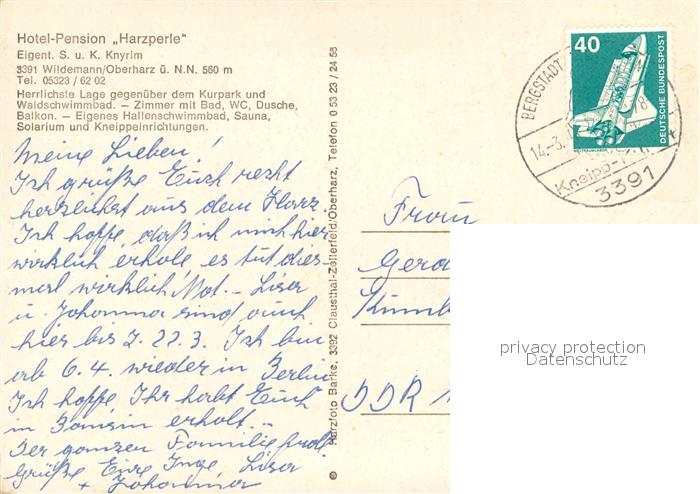 Hotel-Pension „Harzperle"
Eigent. S. u. K. Knyrim
3391 Wildemann/Oberharz ü. N.N. 560 m
Tel. 05323 / 62 02
Herrlichste Lage gegenüber dem Kurpark und
Waldschwimmbad. — Zimmer mit Bad, WC, Dusche,
Balkon. — Eigenes Hallenschwimmbad, Sauna,
Solarium und Kneippeinrichtungen.
Meine Lieben!
Ich grüße Euch recht
herzlichst aus dem Harz.
Ich hoffe, daß ich mich hier
wirklich erhole, es tut dies-
mal wirklich Not. - Lisa
u. Johanna sind auch
hier bis z. 22.3. Ich bin
ab 6.4. wieder in Berlin
Ich hoffe, Ihr habt Euch
in Bansin erholt. -
Der ganzen Familie
Grüße Eure Inge, Lisa
+ Johanna
Harzfoto Barke, 3392 Clausthal-Zellerfeld/Oberharz, Telefon 0 53 23 / 24 56
40
DEUTSCHE BUNDESPOST
BERGSTADT
14.-3.
Kneipp-
3391
Frau
Gerd
DDR
privacy protection
Datenschutz